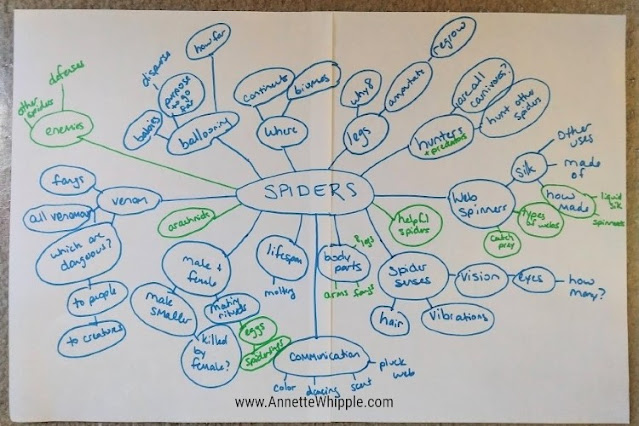 how far
regrow
disperse
continents
biomes
why 8
amputate
defenses
other
spiders
purpose
to go
far
are all
carnivores?
hunt other
spiders
enemies
babies
ballooning
where
legs
hunters
+ predators
other
uses
silk
made
of
fangs
venom
SPIDERS
Web
spinners
how
made
liquid
silk
spinnerets
all venomous
arachnids
helpful
spiders
types
of webs
catch
prey
which are
dangerous?
male +
female
lifespan
molting
body
parts
8 legs
arms
fangs
Spider
senses
vision
eyes
how
many?
to people
male
smaller
mating
rituals
hair
vibrations
to creatures
killed
by
female?
eggs
spiderlings
communication
color
dancing
scent
pluck
web
www.AnnetteWhipple.com